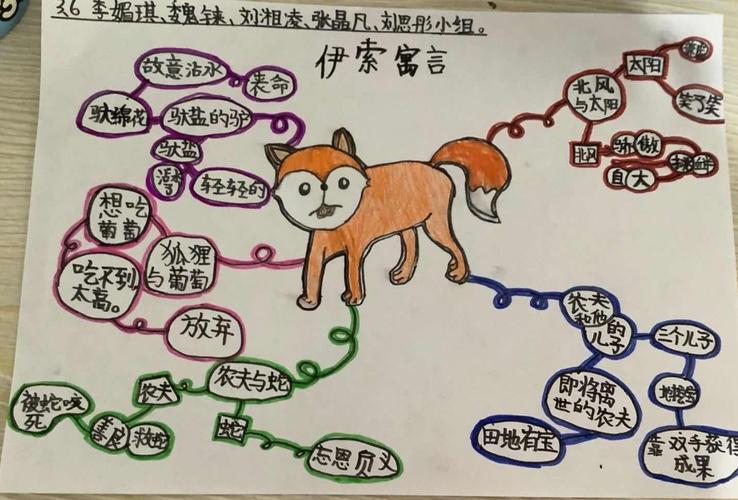 3.6 李媚琪、魏铼、刘湘凌、张晶凡、刘思彤小组。
伊索寓言
故意沾水
丧命
驮棉花
驮盐的驴
驮盐
轻轻轻的
想吃
葡萄
狐狸
与葡萄
吃不到
太高。
放弃
农夫与蛇
农夫
善良
被蛇咬
死
蛇
忘恩负义
北风
与太阳
太阳
笑了笑
北风
骄傲
自大
农夫
和他
的
儿子
三个儿子
即将离
世的农夫
田地有宝
靠双手获得
成果